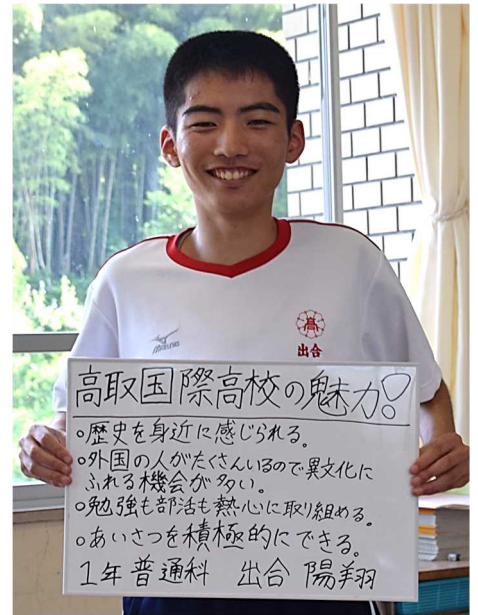 MIZUNO
高
出合
高取国際高校の魅力！
○歴史を身近に感じられる。
○外国の人がたくさんいるので異文化に
ふれる機会が多い。
○勉強も部活も熱心に取り組める。
○あいさつを積極的にできる。
1年 普通科 出合 陽翔